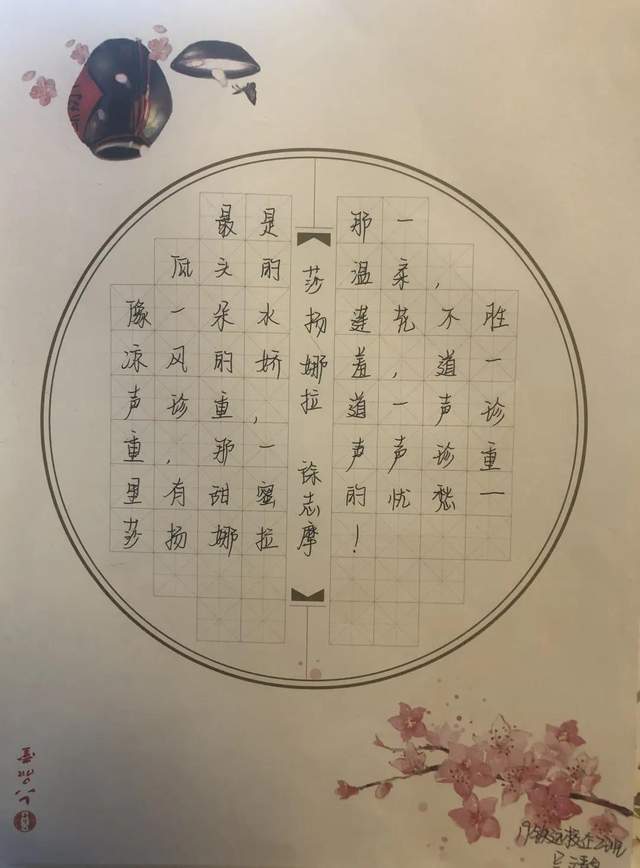 莎扬娜拉 徐志摩
最是那一
低头的温柔，
像一朵水莲花不胜
凉风的娇羞，道一
声珍重，道一声珍
重，那一声声珍重
里有甜蜜的忧愁一
莎扬娜拉！